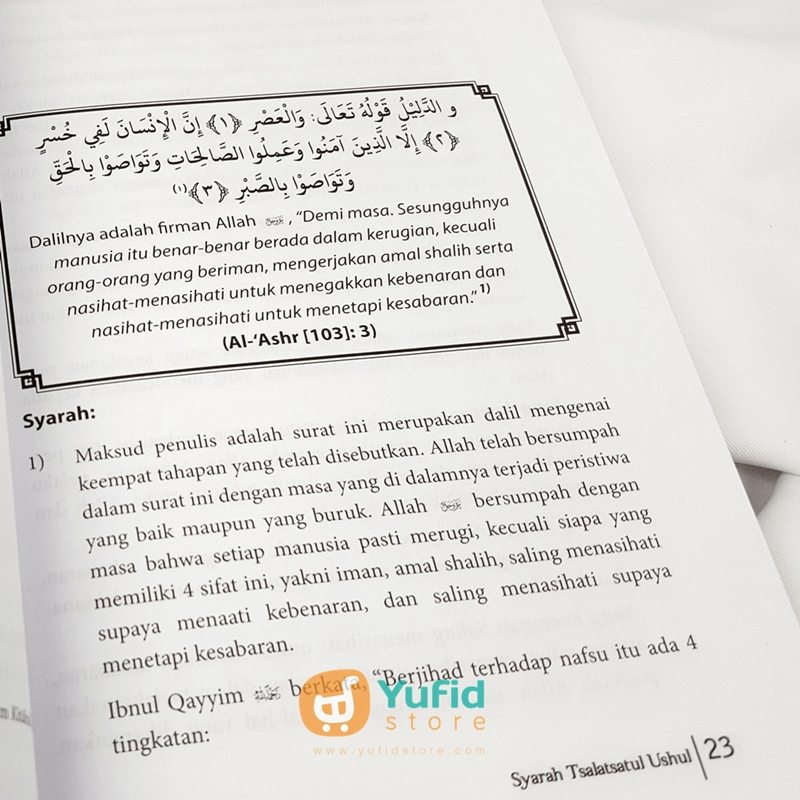 و الدَّلِيْلُ قَوْلُهُ تَعَالَى: وَالْعَصْرِ ﴿١﴾ إِنَّ الْإِنْسَانَ لَفِي خُسْرٍ
﴿٢﴾ إِلَّا الَّذِينَ آمَنُوا وَعَمِلُوا الصَّالِحَاتِ وَتَوَاصَوْا بِالْحَقِّ
وَتَوَاصَوْا بِالصَّبْرِ ﴿٣﴾(١)
Dalilnya adalah firman Allah , “Demi masa. Sesungguhnya
manusia itu benar-benar berada dalam kerugian, kecuali
orang-orang yang beriman, mengerjakan amal shalih serta
nasihat-menasihati untuk menegakkan kebenaran dan
nasihat-menasihati untuk menetapi kesabaran.”1)
(Al-‘Ashr [103]: 3)
Syarah:
1) Maksud penulis adalah surat ini merupakan dalil mengenai
keempat tahapan yang telah disebutkan. Allah telah bersumpah
dalam surat ini dengan masa yang di dalamnya terjadi peristiwa
yang baik maupun yang buruk. Allah bersumpah dengan
masa bahwa setiap manusia pasti merugi, kecuali siapa yang
memiliki 4 sifat ini, yakni iman, amal shalih, saling menasihati
supaya menaati kebenaran, dan saling menasihati supaya
menetapi kesabaran.
Ibnul Qayyim berkata, “Berjihad terhadap nafsu itu ada 4
tingkatan:
Yufid
store
www.yufidstore.com
Syarah Tsalatsatul Ushul 23